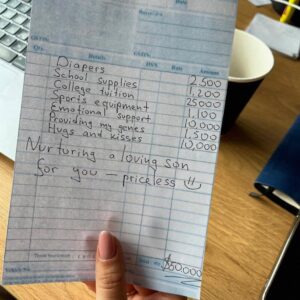 Date
GSTIN:
Qty. Details HSN. Rate Amount
Diapers 2,500
School supplies 1,200
College tuition 25000
Sports equipment 1,100
Emotional support 10,000
Providing my genes 1,500
Hugs and kisses 10,000
Nurturing a loving son
for you — priceless
$50000